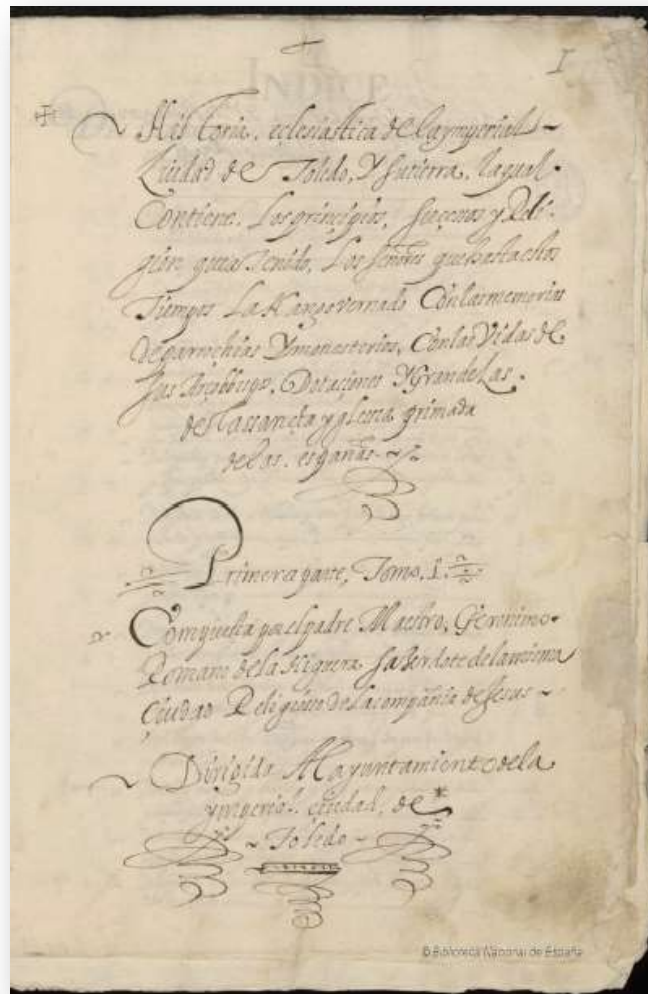 I
Historia, eclesiastica de la ymperial
Ciudad de Toledo, Y su tierra, la qual
Contiene. Los principios, sucçesos y Reli-
gion que a tenido, Los señores que hasta estos
Tiempos La Han governado Con las memorias
de parrochias Y monesterios, Con las Vidas de
sus Arçobispos, Dotaciones Y Grandeças
de la ssancta yglesia primada
de las españas
Primera parte, Tomo, 1.
Compuesta por el padre Maestro, Geronimo
Romano de la Higuera, Saçerdote de la misma
Çiudad Religioso de la compañia de Jesus
Dirigida Al ayuntamiento de la
ymperial ciudad, de
Toledo
© Biblioteca Nacional de España